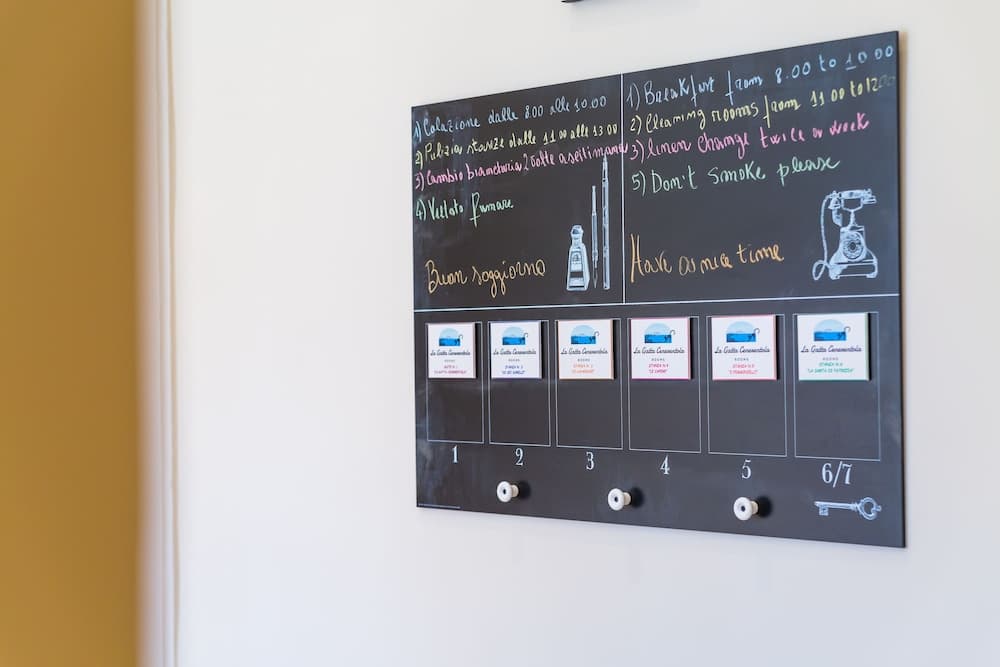 1) Colazione dalle 8.00 alle 10.00
2) Pulizia stanze dalle 11.00 alle 13.00
3) Cambio biancheria 2 volte a settimana
4) Vietato fumare
Buon soggiorno
1) Breakfast from 8.00 to 10.00
2) Cleaming rooms from 11 00 to
3) linen change twice a week
5) Don't smoke please
Have a nice time
La Gatta Cenerentola
ROOMS
La Gatta Cenerentola
ROOMS
STANZA N.2
La Gatta Cenerentola
ROOMS
STANZA N.3
La Gatta Cenerentola
ROOMS
STANZA N.4
La Gatta Cenerentola
ROOMS
STANZA N.5
La Gatta Cenerentola
ROOMS
STANZA N.6
1
2
3
4
5
6/7